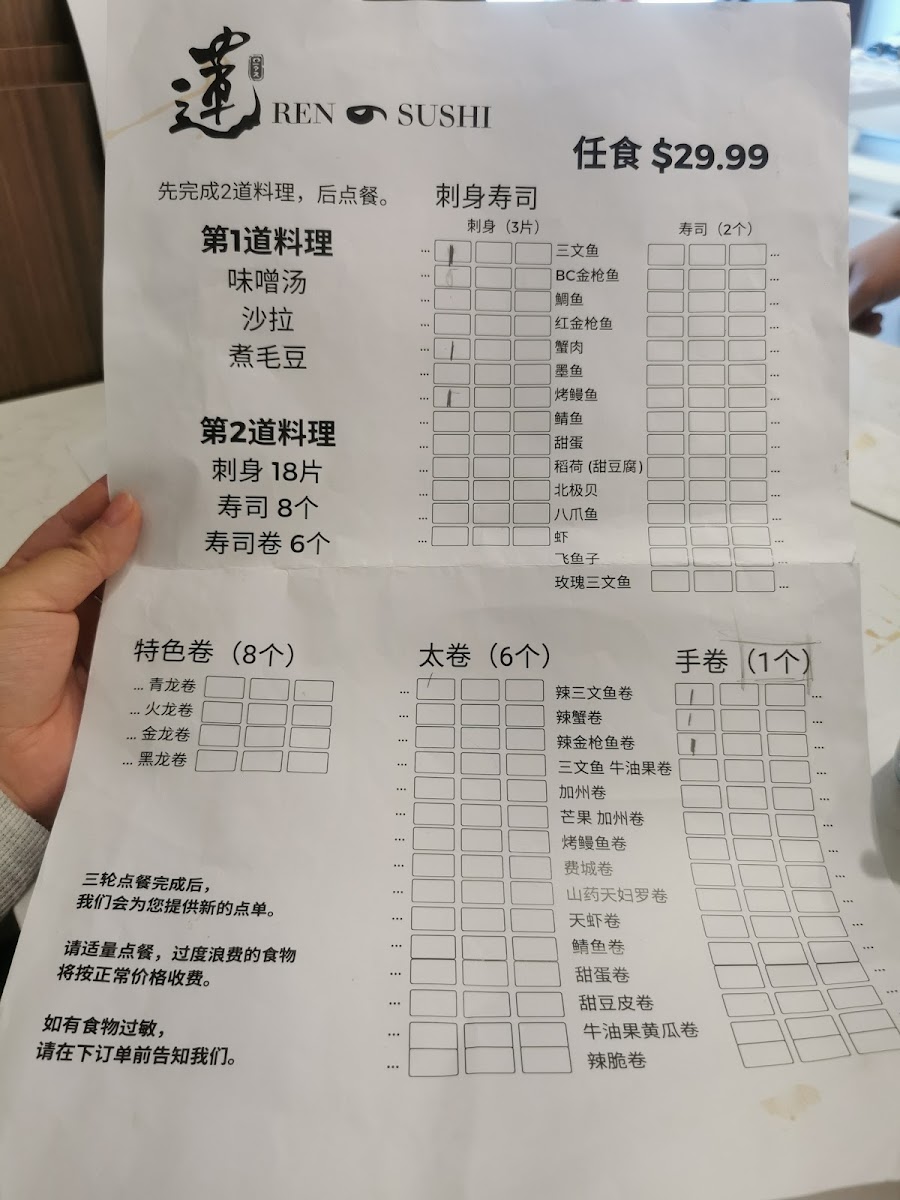 蓮
REN の SUSHI
任食 $29.99
先完成2道料理，后点餐。
第1道料理
味噌汤
沙拉
煮毛豆
第2道料理
刺身 18片
寿司 8个
寿司卷 6个
刺身寿司
刺身（3片）
寿司（2个）
三文鱼
BC金枪鱼
鲷鱼
红金枪鱼
蟹肉
墨鱼
烤鳗鱼
鲭鱼
甜蛋
稻荷 (甜豆腐)
北极贝
八爪鱼
虾
飞鱼子
玫瑰三文鱼
特色卷（8个）
... 青龙卷
... 火龙卷
... 金龙卷
... 黑龙卷
太卷（6个）
手卷（1个）
辣三文鱼卷
辣蟹卷
辣金枪鱼卷
三文鱼 牛油果卷
加州卷
芒果 加州卷
烤鳗鱼卷
费城卷
山药天妇罗卷
天虾卷
鲭鱼卷
甜蛋卷
甜豆皮卷
牛油果黄瓜卷
辣脆卷
三轮点餐完成后，
我们会为您提供新的点单。
请适量点餐，过度浪费的食物
将按正常价格收费。
如有食物过敏，
请在下订单前告知我们。